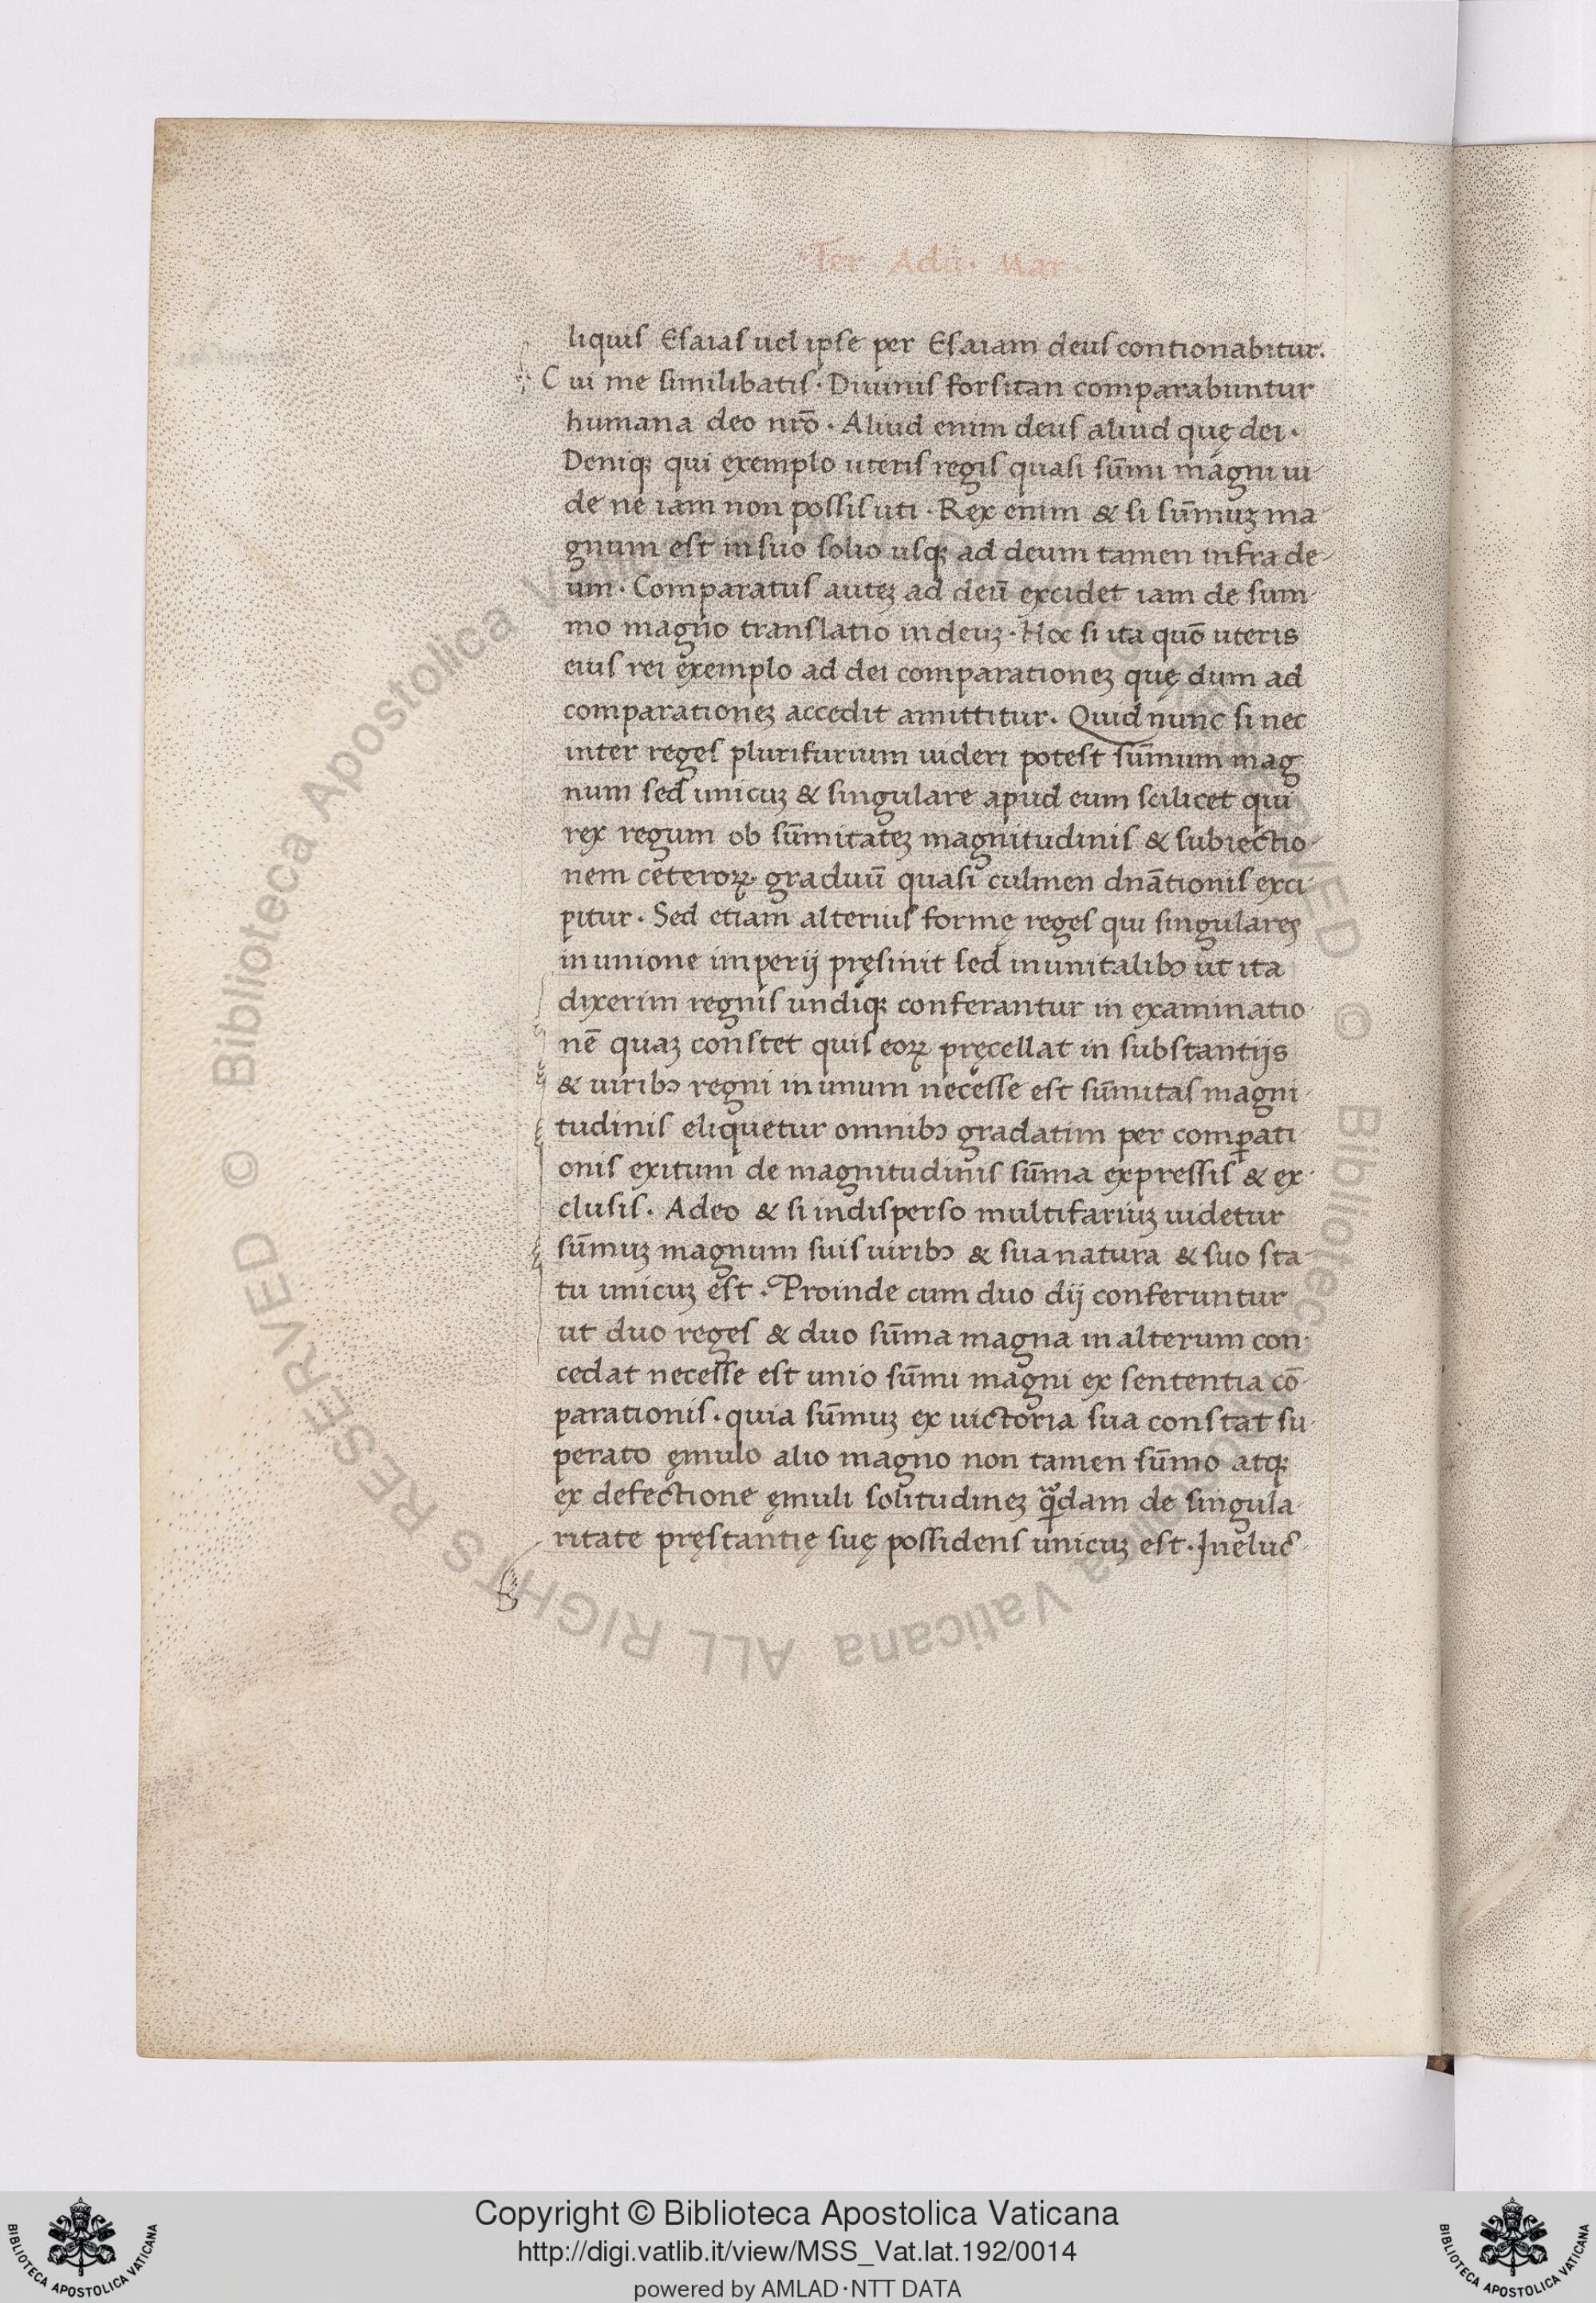 ·Ter· Adu̅· Mar·
liquis Esaias uel ipse per Esaiam deus contionabitur.
Cui me similibatis · Diuinis forsitan comparabuntur
humana deo nr̅o · Aliud enim deus aliud quę dei ·
Deniqꝫ qui exemplo uteris regis quasi sum̅i magni ui
de ne iam non possis uti · Rex enim & si sum̅uꝫ ma
gnum est in suo solio usqꝫ ad deum tamen infra de-
um · Comparatus auteꝫ ad deu̅ excidet iam de sum
mo magno translatio in deuꝫ · Hoc si ita quo̅ uteris
eius rei exemplo ad dei comparationeꝫ quę dum ad
comparationeꝫ accedit amittitur · Quid nunc si nec
inter reges plurifarium uideri potest sum̅um mag
num sed unicuꝫ & singulare apud eum scilicet qui
rex regum ob sum̅itateꝫ magnitudinis & subiectio-
nem ceteroꝝ graduu̅ quasi culmen dn̅ationis exci
pitur · Sed etiam alterius formę reges qui singulares
in unione imperij pręsinit sed inunitalibꝰ ut ita
dixerim regnis undiqꝫ conferantur in examinatio
ne̅ quaꝫ constet quis eoꝝ pręcellat in substantijs
& uiribꝰ regni in unum necesse est sum̅itas magni
tudinis eliquetur omnibꝰ gradatim per comꝑati
onis exitum de magnitudinis sum̅a expressis & ex-
clusis · Adeo & si indisperso multifariuꝫ uidetur
sum̅uꝫ magnum suis uiribꝰ & sua natura & suo sta-
tu unicuꝫ est · Proinde cum duo dij conferuntur
ut duo reges & duo sum̅a magna in alterum con-
cedat necesse est unio sum̅i magni ex sententia co̅-
parationis · quia sum̅uꝫ ex uictoria sua constat su
perato ęmulo alio magno non tamen sum̅o atqꝫ
ex defectione ęmuli solitudineꝫ qᷓdam de singula
ritate pręstantię suę possidens unicuꝫ est · Ineluc̅
Copyright © Biblioteca Apostolica Vaticana
http://digi.vatlib.it/view/MSS_Vat.lat.192/0014
powered by AMLAD·NTT DATA
© Biblioteca Apostolica Vaticana ALL RIGHTS RESERVED
BIBLIOTECA APOSTOLICA VATICANA
BIBLIOTECA APOSTOLICA VATICANA